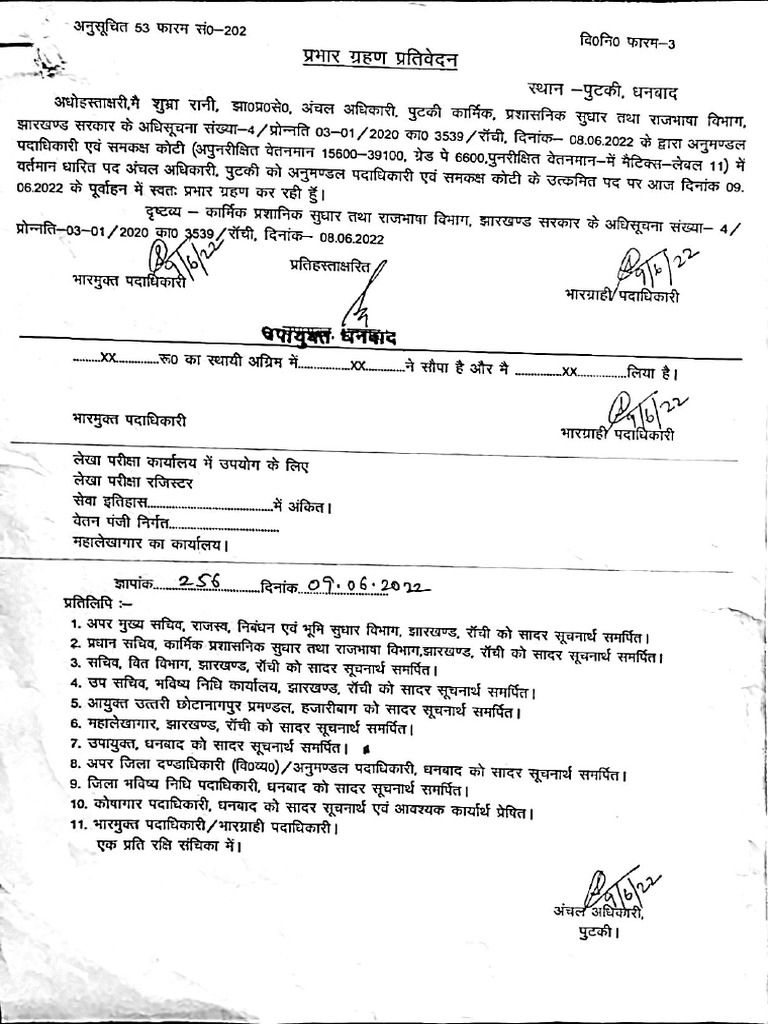 अनुसूचित 53 फारम सं0-202
वि0नि0 फारम-3
प्रभार ग्रहण प्रतिवेदन
स्थान -पुटकी, धनबाद
अधोहस्ताक्षरी,मै शुभ्रा रानी, झा0प्र0से0, अंचल अधिकारी, पुटकी कार्मिक, प्रशासनिक सुधार तथा राजभाषा विभाग,
झारखण्ड सरकार के अधिसूचना संख्या-4/प्रोन्नति 03-01/2020 का0 3539/रॉची, दिनांक- 08.06.2022 के द्वारा अनुमण्डल
पदाधिकारी एवं समकक्ष कोटी (अपुनरीक्षित वेतनमान 15600-39100, ग्रेड पे 6600,पुनरीक्षित वेतनमान-में मैटिक्स-लेबल 11) में
वर्तमान धारित पद अंचल अधिकारी, पुटकी को अनुमण्डल पदाधिकारी एवं समकक्ष कोटी के उत्कमित पद पर आज दिनांक 09.
06.2022 के पूर्वाहन में स्वतः प्रभार ग्रहण कर रही हूँ।
दृष्टव्य - कार्मिक प्रशानिक सुधार तथा राजभाषा विभाग, झारखण्ड सरकार के अधिसूचना संख्या- 4/
प्रोन्नति-03-01/2020 का0 3539/रॉची, दिनांक- 08.06.2022
9/6/22
प्रतिहस्ताक्षरित
9/6/22
भारमुक्त पदाधिकारी
भारग्राही पदाधिकारी
उपायुक्त, धनबाद
.........xx.............रू0 का स्थायी अग्रिम में.................xx............ने सौपा है और मै ...............xx...............लिया है।
9/6/22
भारमुक्त पदाधिकारी
भारग्राही पदाधिकारी
लेखा परीक्षा कार्यालय में उपयोग के लिए
लेखा परीक्षा रजिस्टर
सेवा इतिहास.......................................में अंकित।
वेतन पंजी निर्गत..................................
महालेखागार का कार्यालय।
ज्ञापांक......256............दिनांक..09.06.2022
प्रतिलिपि :-
1. अपर मुख्य सचिव, राजस्व, निबंधन एवं भूमि सुधार विभाग, झारखण्ड, रॉची को सादर सूचनार्थ समर्पित।
2. प्रधान सचिव, कार्मिक प्रशासनिक सुधार तथा राजभाषा विभाग,झारखण्ड, रॉची को सादर सूचनार्थ समर्पित।
3. सचिव, वित विभाग, झारखण्ड, रॉची को सादर सूचनार्थ समर्पित।
4. उप सचिव, भविष्य निधि कार्यालय, झारखण्ड, रॉची को सादर सूचनार्थ समर्पित।
5. आयुक्त उत्तरी छोटानागपुर प्रमण्डल, हजारीबाग को सादर सूचनार्थ समर्पित।
6. महालेखागार, झारखण्ड, रॉची को सादर सूचनार्थ समर्पित।
7. उपायुक्त, धनबाद को सादर सूचनार्थ समर्पित।
8. अपर जिला दण्डाधिकारी (वि0व्य0)/अनुमण्डल पदाधिकारी, धनबाद को सादर सूचनार्थ समर्पित।
9. जिला भविष्य निधि पदाधिकारी, धनबाद को सादर सूचनार्थ समर्पित।
10. कोषागार पदाधिकारी, धनबाद को सादर सूचनार्थ एवं आवश्यक कार्यार्थ प्रेषित।
11. भारमुक्त पदाधिकारी/भारग्राही पदाधिकारी।
एक प्रति रक्षि संचिका में।
9/6/22
अंचल अधिकारी,
पुटकी।